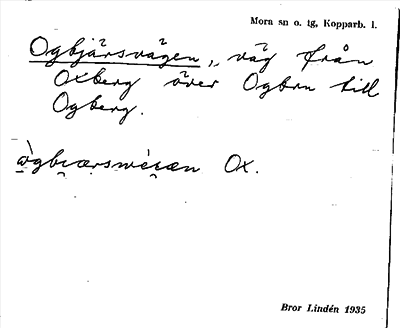 Mora sn o. tg, Kopparb. l.
Ogbjärsvägen, väg från
Oxberg över Ogbrn till
Ogberg.
Ox.
Bror Lindén 1935